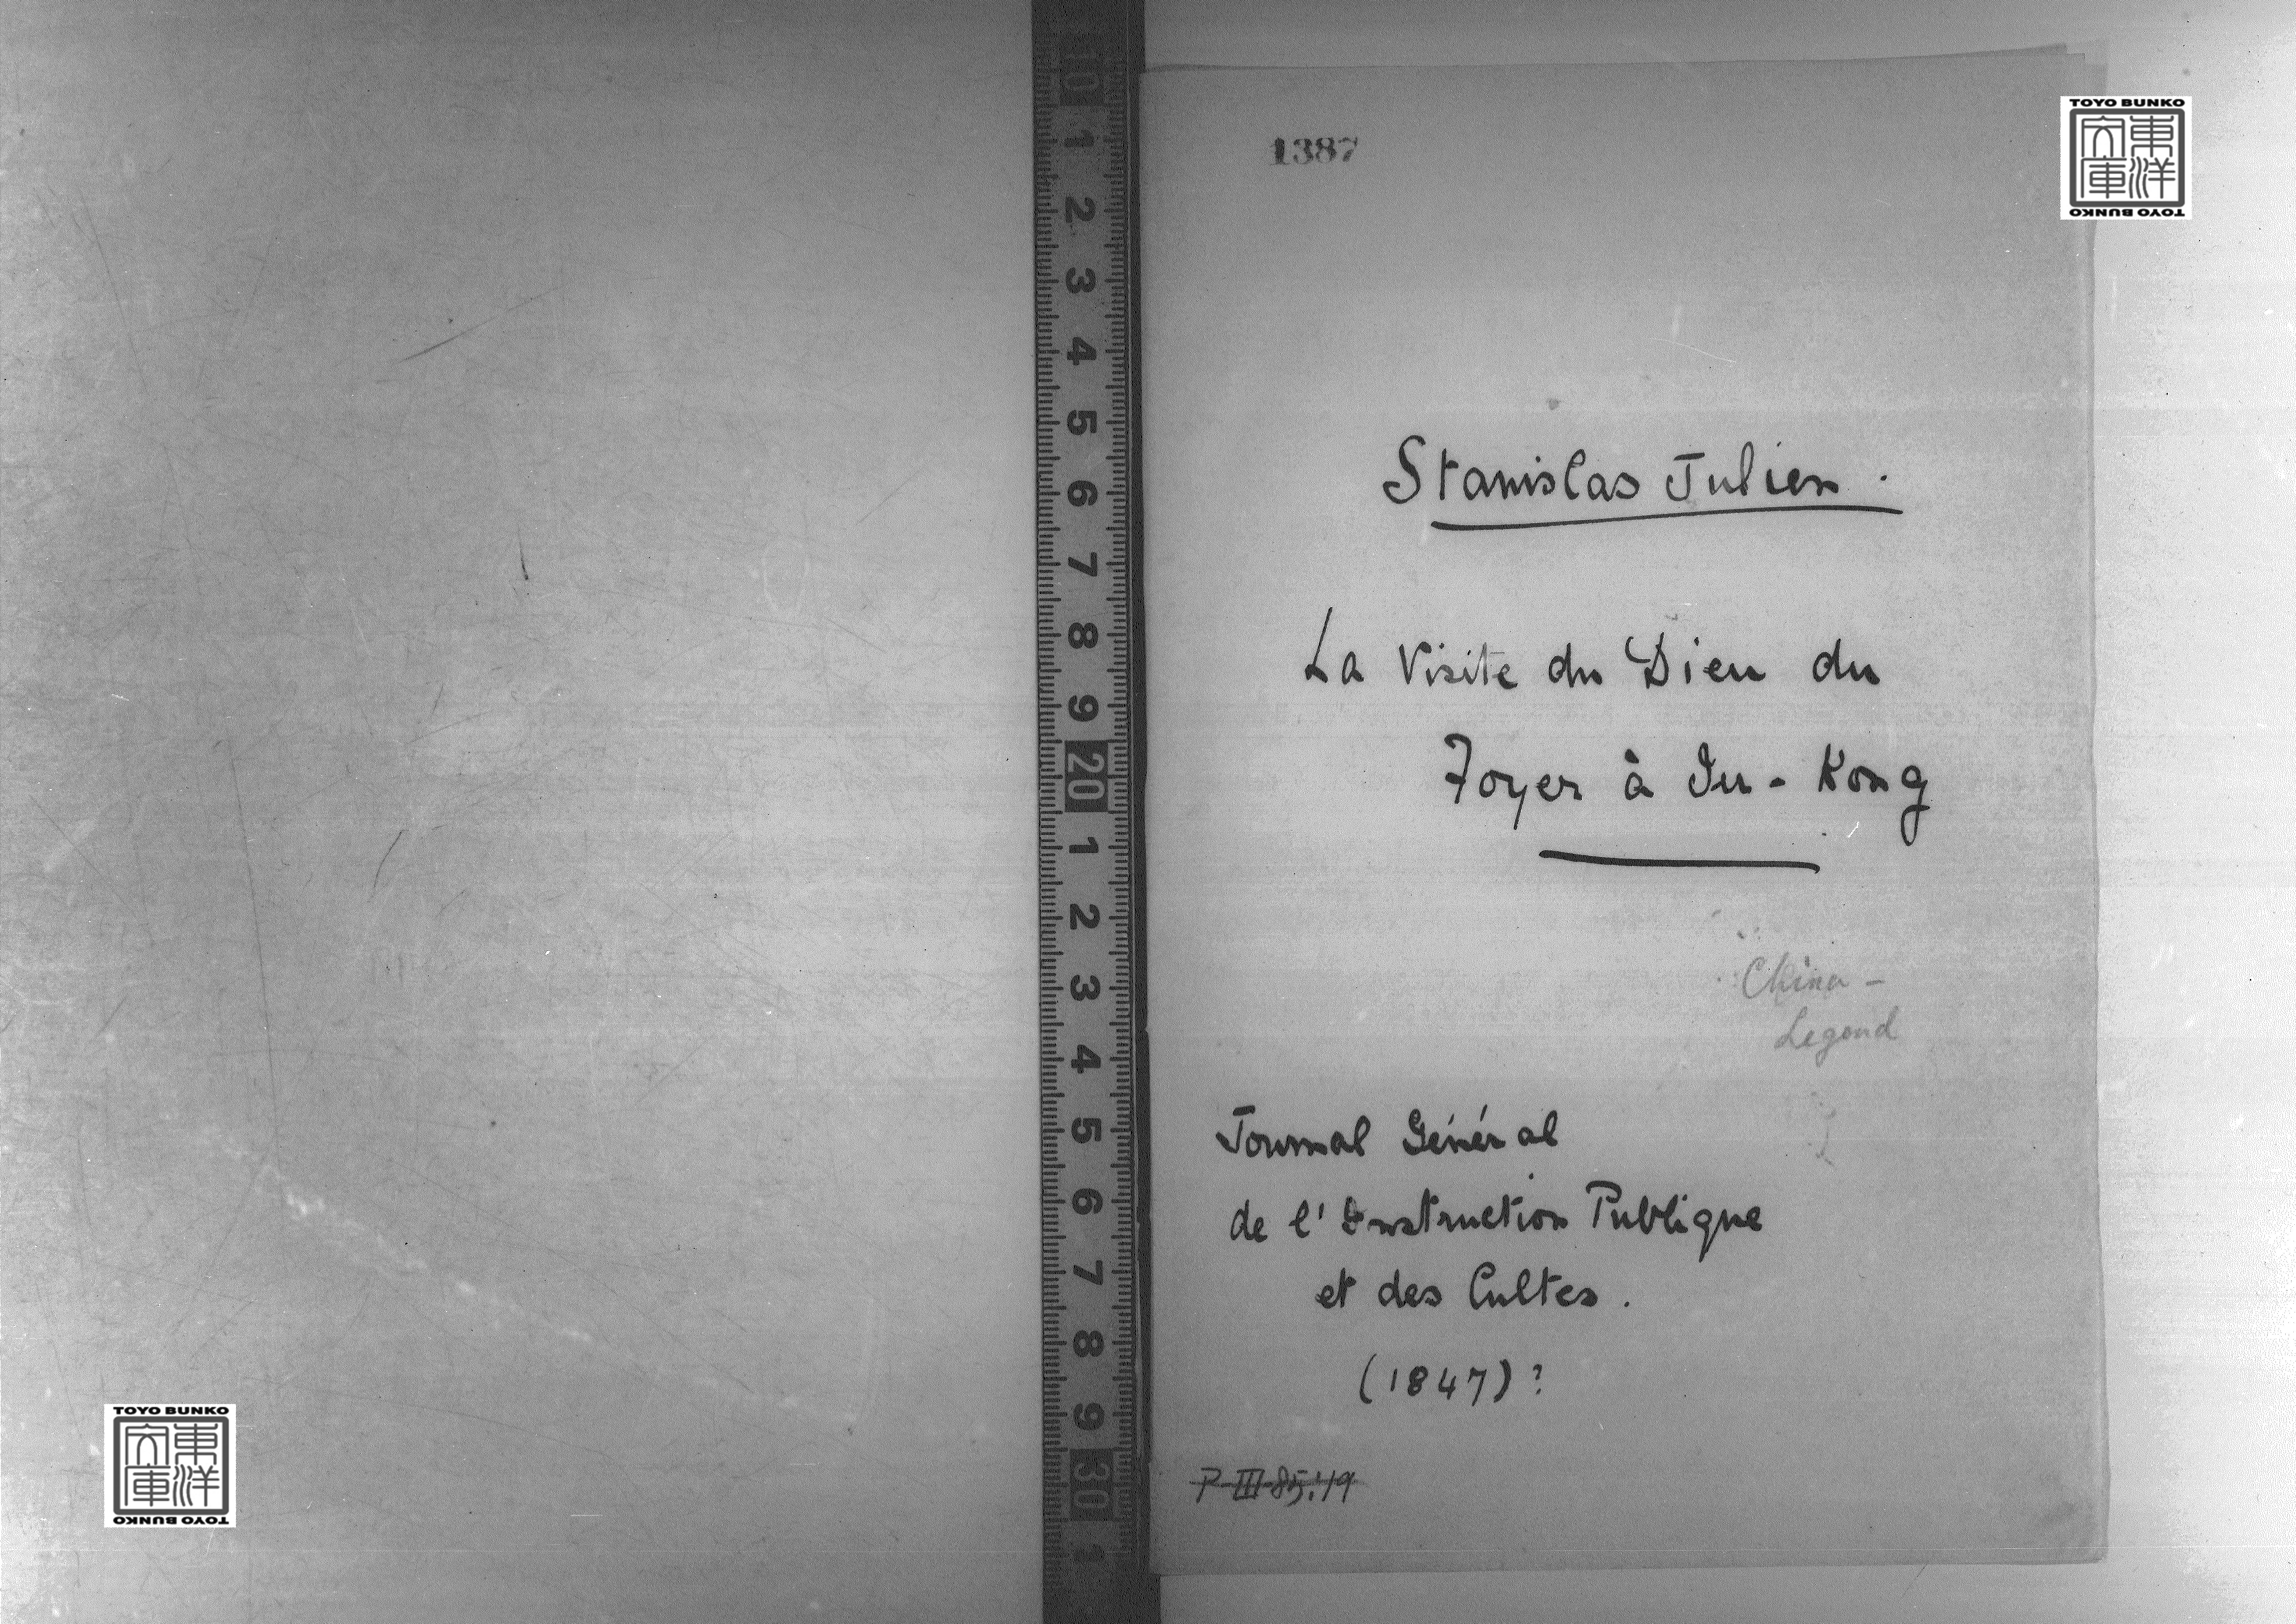 1387
TOYO BUNKO
東洋文庫
TOYO BUNKO
Stanislas Julien.
La Visite du Dieu du
Foyer à Iu-Kong
China -
Legend
Journal Général
de l'Instruction Publique
et des Cultes.
(1847)?
P-III-85:19
10
1
2
3
4
5
6
7
8
9
20
1
2
3
4
5
6
7
8
9
30
1
TOYO BUNKO
東洋文庫
TOYO BUNKO